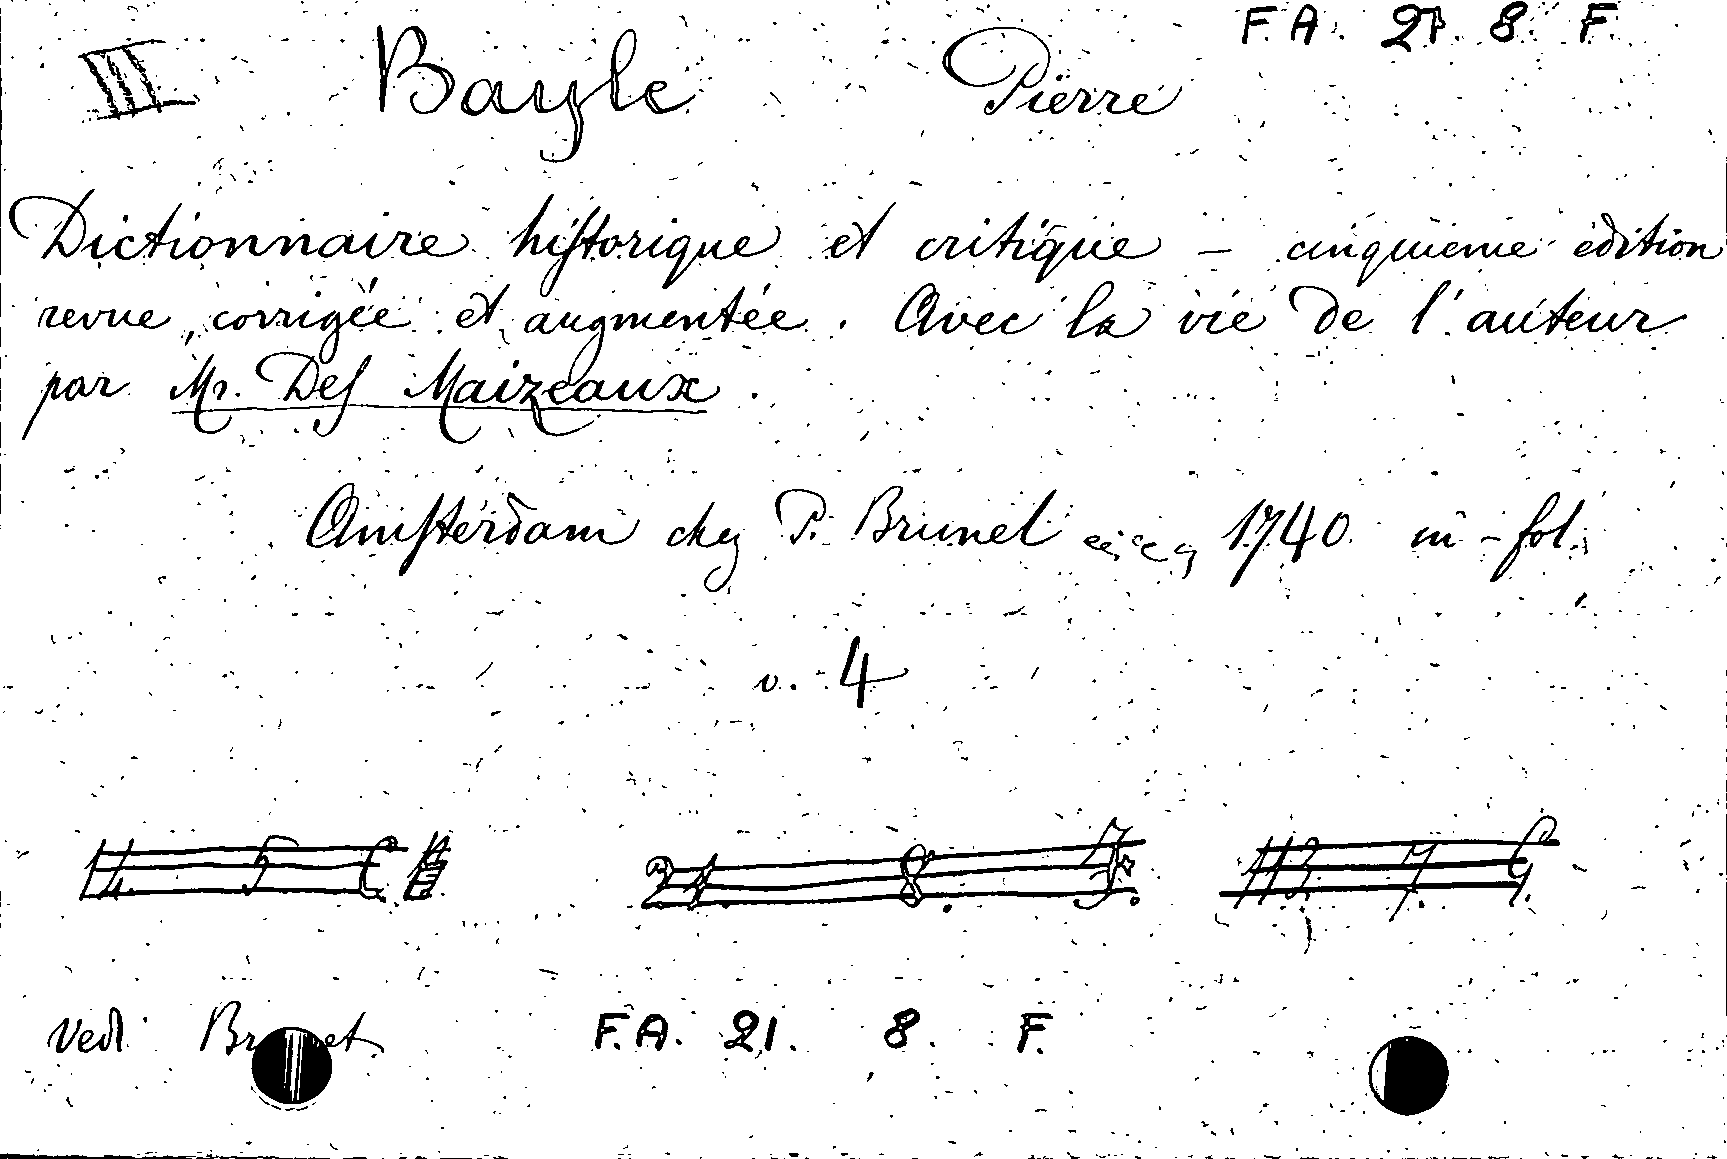 F. A. 21. 8. F.
III Bayle Pierre
Dictionnaire historique et critique – cinquième édition
revue, corrigée et augmentée. Avec la vie de l'auteur
par Mr. Des Maizeaux.
Amsterdam chez P. Brunel 1740 in-fol.
v. 4
14. 5 C. 21. 8. F. 113. 7. G.
Vedi F. A. 21. 8. F.